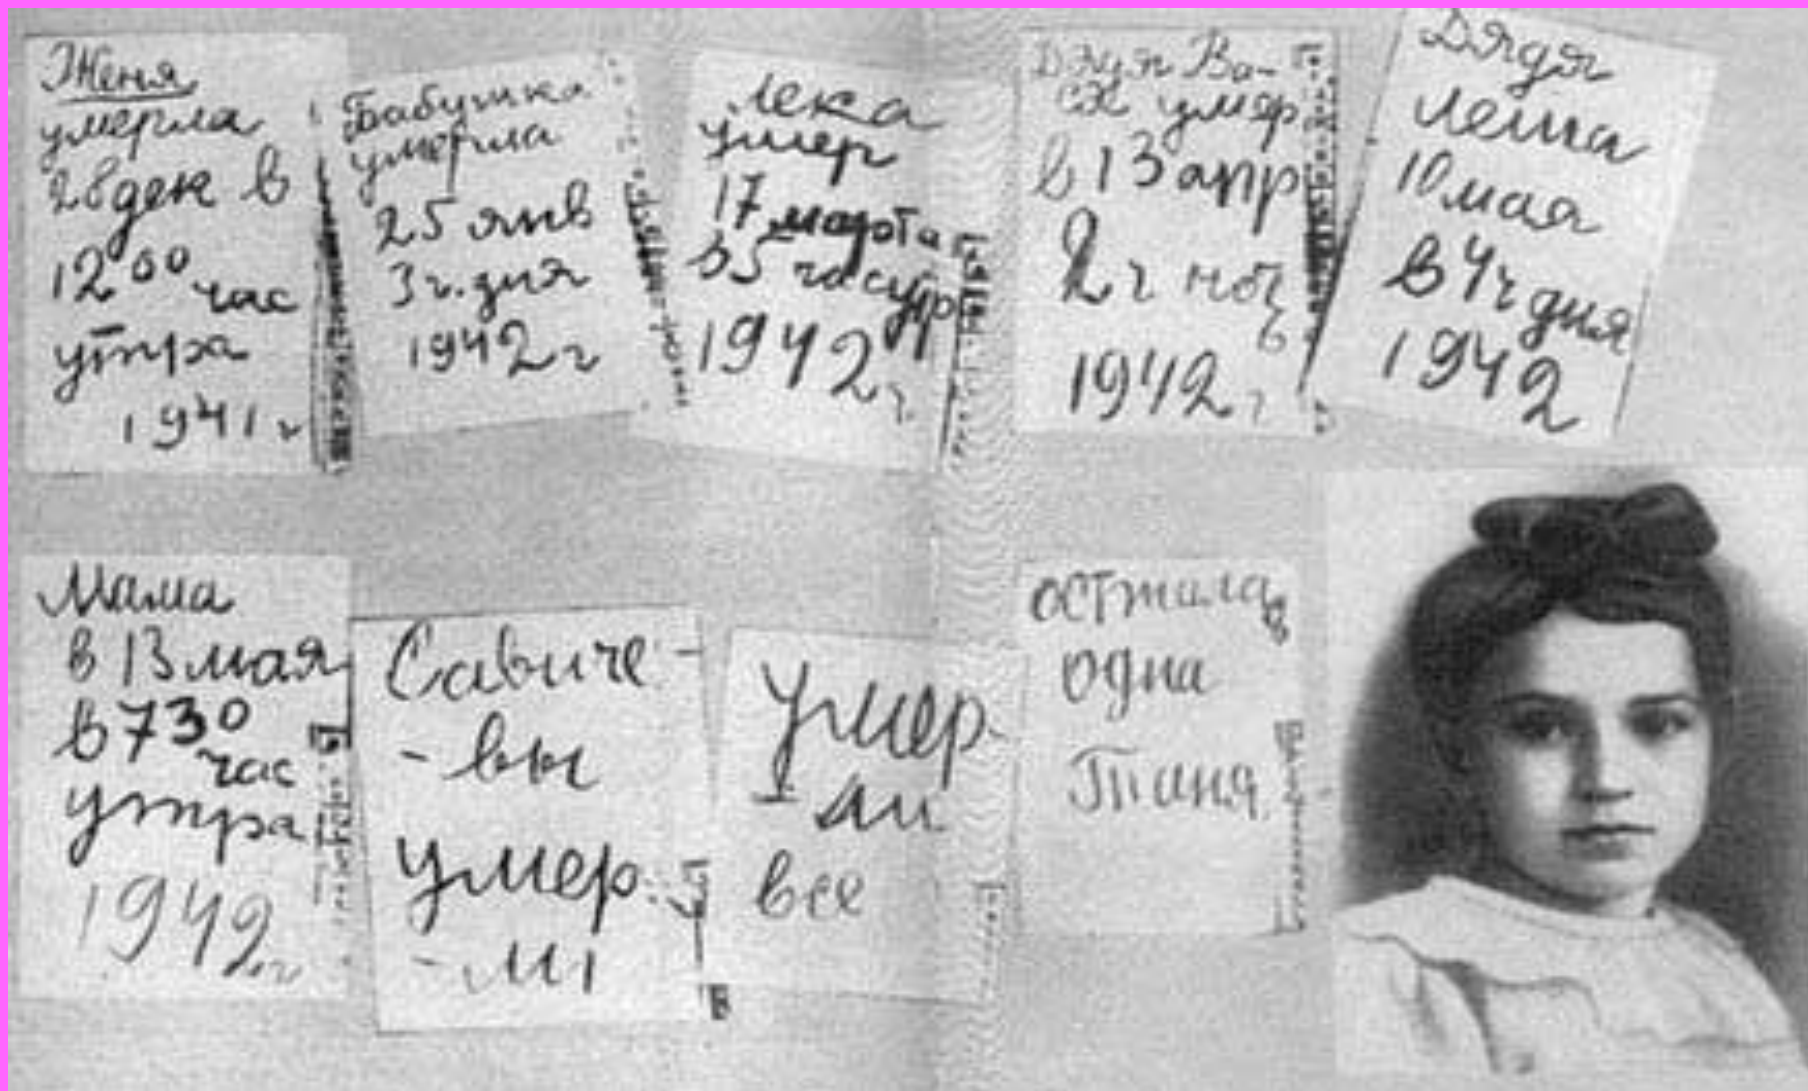 Женя
умерла
28 дек в
12 00 час
утра
1941 г
Бабушка
умерла
25 янв
3 ч. дня
1942 г
Лека
умер
17 марта
в 5 час утр
1942 г
Дядя Ва-
ся умер
в 13 апр
2 ч ночь
1942 г
Дядя
Леша
10 мая
в 4 ч дня
1942
Мама
в 13 мая
в 7 30
час
утра
1942 г
Савиче-
-вы
умер
-ли
Умер
ли
все
осталась
одна
Таня